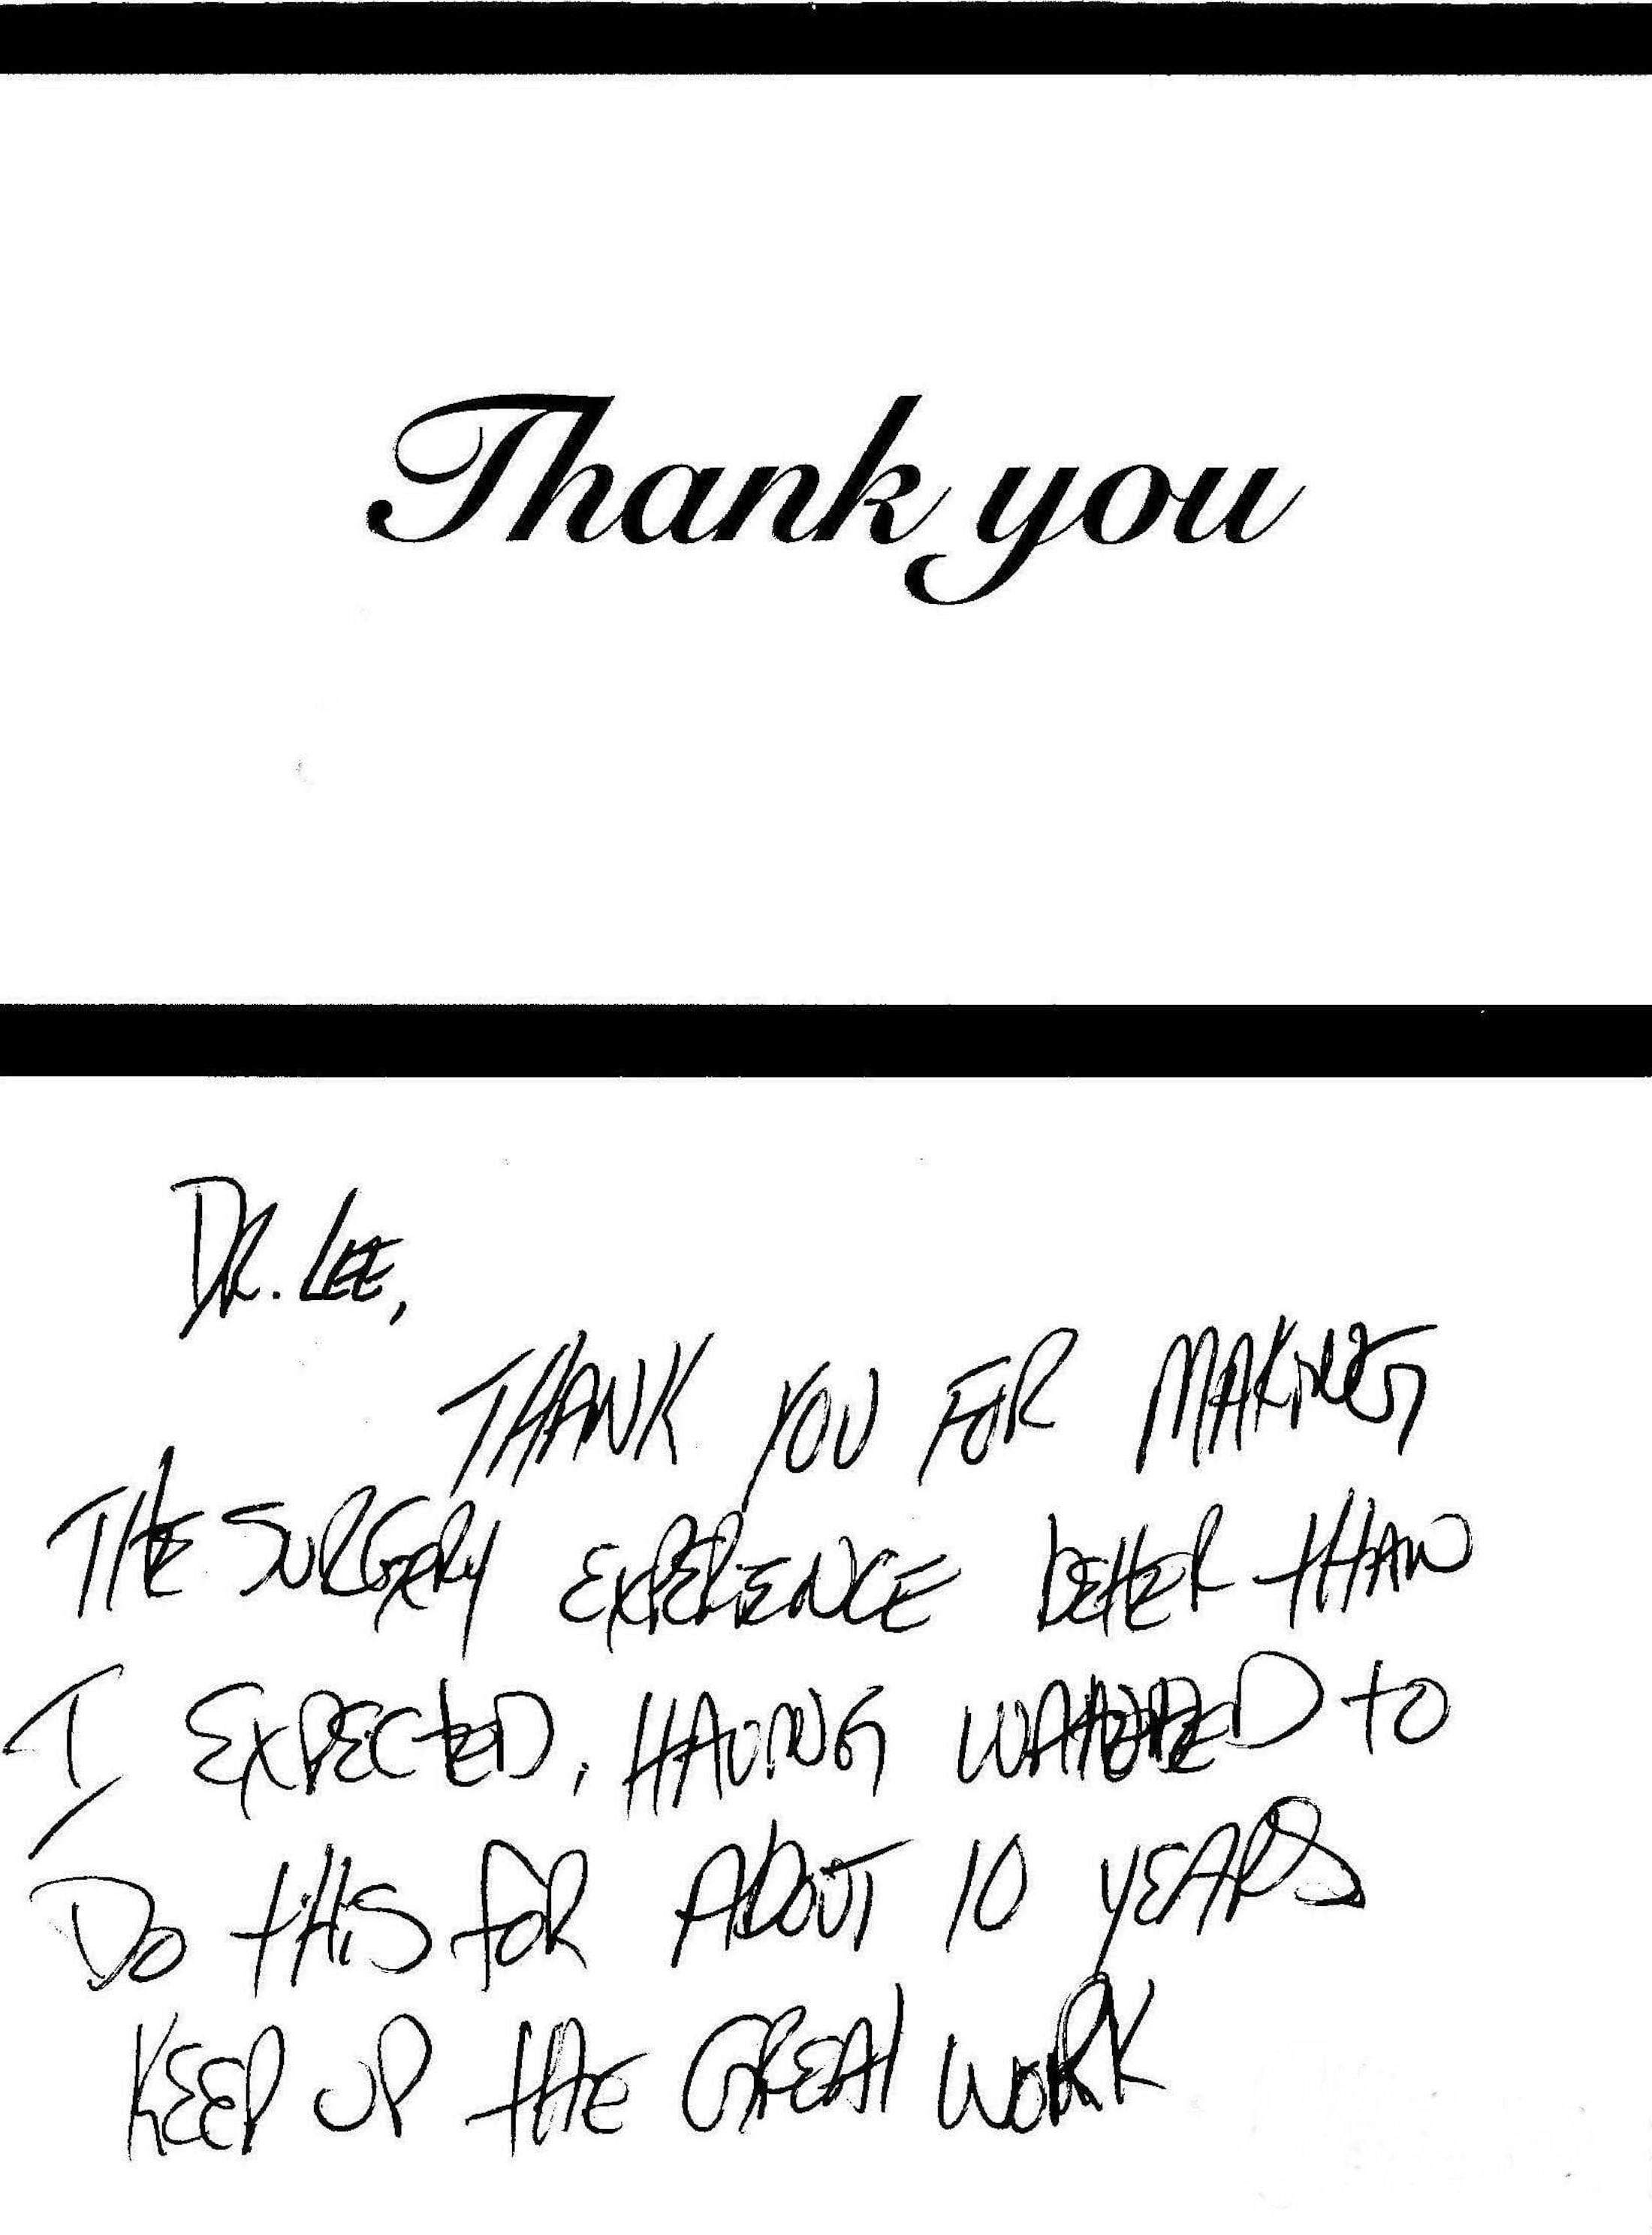 Thank you
DR. LEE,
THANK YOU FOR MAKING
THE SURGERY EXPERIENCE BETTER THAN
I EXPECTED, HAVING WANTED TO
DO THIS FOR ABOUT 10 YEARS
KEEP UP THE GREAT WORK